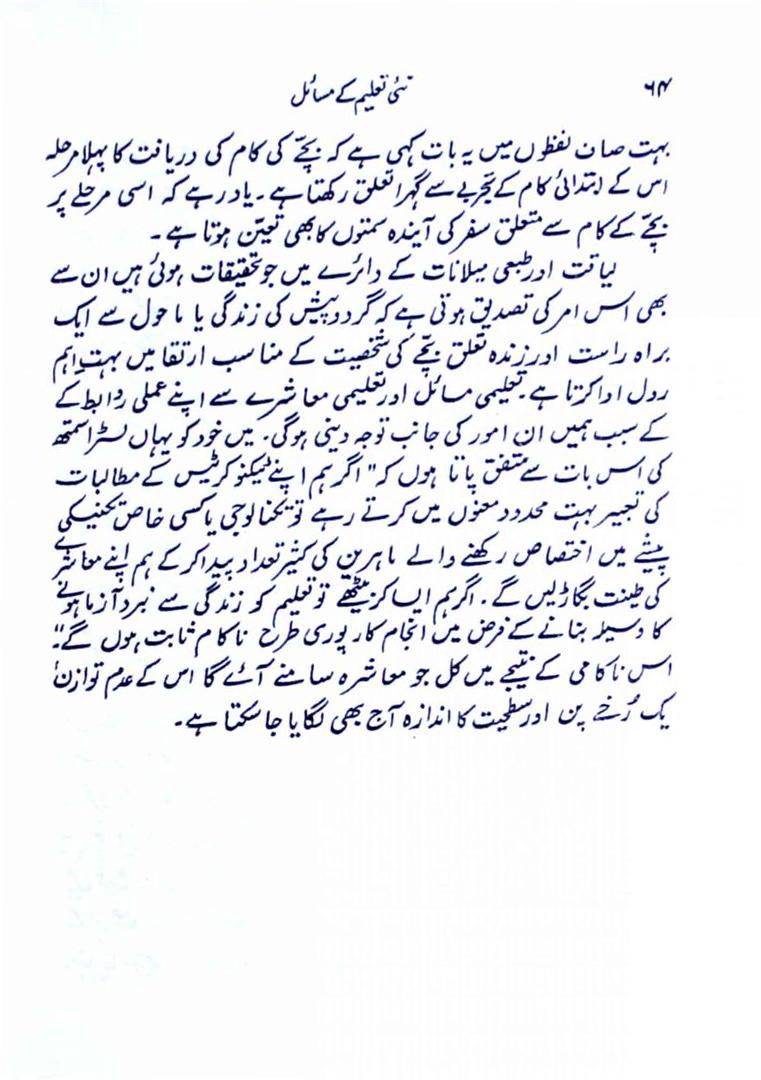 ۶۴
نئی تعلیم کے مسائل
بہت صاف لفظوں میں یہ بات کہی ہے کہ بچّے کی کام کی دریافت کا پہلا مرحلہ
اس کے ابتدائی کام کے تجربے سے گہرا تعلق رکھتا ہے۔ یاد رہے کہ اسی مرحلے پر
بچّے کے کام سے متعلق سفر کی آیندہ سمتوں کا بھی تعیّن ہوتا ہے۔
لیاقت اور طبعی میلانات کے دائرے میں جو تحقیقات ہوئی ہیں ان سے
بھی اس امر کی تصدیق ہوتی ہے کہ گرد و پیش کی زندگی یا ماحول سے ایک
براہ راست اور زندہ تعلق بچّے کی شخصیت کے مناسب ارتقا میں بہت اہم
رول ادا کرتا ہے۔ تعلیمی مسائل اور تعلیمی معاشرے سے اپنے عملی روابط کے
کے سبب ہمیں ان امور کی جانب توجہ دینی ہوگی۔ میں خود کو یہاں لسٹر اسمتھ
کی اس بات سے متفق پاتا ہوں کہ "اگر ہم اپنے ٹیکنوکریٹس کے مطالبات
کی تعبیر بہت محدود معنوں میں کرتے رہے تو ٹکنالوجی یا کسی خاص تکنیکی
پیشے میں اختصاص رکھنے والے ماہرین کی کثیر تعداد پیدا کر کے ہم اپنے معاشرے
کی طینت بگاڑ لیں گے۔ اگر ہم ایسا کر بیٹھے تو تعلیم کو زندگی سے نبرد آزما ہونے
کا وسیلہ بنانے کے فرض میں انجام کار پوری طرح ناکام ثابت ہوں گے۔"
اس ناکامی کے نتیجے میں کل جو معاشرہ سامنے آئے گا اس کے عدم توازن،
یک رُخے پن اور سطحیت کا اندازہ آج بھی لگایا جا سکتا ہے۔